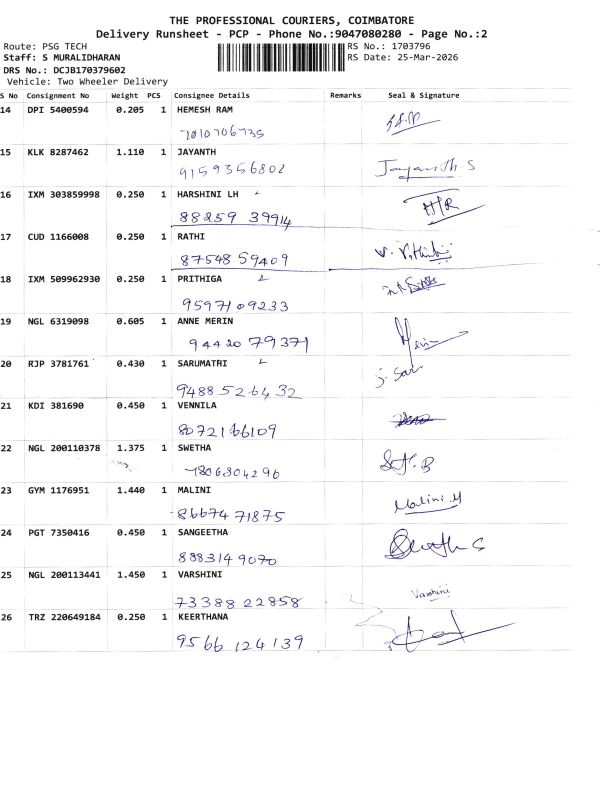 THE PROFESSIONAL COURIERS, COIMBATORE
Delivery Runsheet - PCP - Phone No.:9047080280 - Page No.:2
Route: PSG TECH
RS No.: 1703796
Staff: S MURALIDHARAN
RS Date: 25-Mar-2026
DRS No.: DCJB170379602
Vehicle: Two Wheeler Delivery
S No Consignment No Weight PCS Consignee Details Remarks Seal & Signature
14 DPI 5400594 0.205 1 HEMESH RAM
7010706735
15 KLK 8287462 1.110 1 JAYANTH
9159356802 Jayanth S
16 IXM 303859998 0.250 1 HARSHINI LH
88259 39914
17 CUD 1166008 0.250 1 RATHI
87548 59409
18 IXM 509962930 0.250 1 PRITHIGA
9597109233
19 NGL 6319098 0.605 1 ANNE MERIN
94420 79371
20 RJP 3781761 0.430 1 SARUMATHI
9488526432
21 KDI 381690 0.450 1 VENNILA
8072166109
22 NGL 200110378 1.375 1 SWETHA
7806804296
23 GYM 1176951 1.440 1 MALINI
86674 71875 Malini.M
24 PGT 7350416 0.450 1 SANGEETHA
8883149070
25 NGL 200113441 1.450 1 VARSHINI
73388 22858 Varshini
26 TRZ 220649184 0.250 1 KEERTHANA
9566 124139